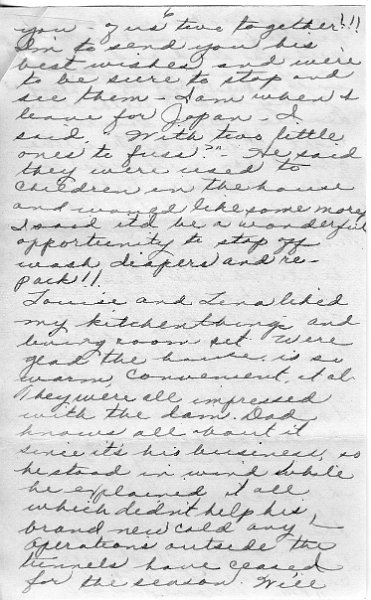 6
you & us two together!!!
I'm to send you his
best wishes and were
to be sure to stop and
see them - I am when I
leave for Japan - I
said, "With two little
ones to fuss?" He said
they were used to
children in the house
and would like some more.
I said it'd be a wonderful
opportunity to stop off
wash diapers and re-
pack!!
Louise and Lena liked
my kitchen things and
living room set. Were
glad the house is so
warm, convenient, et al.
They were all impressed
with the dam. Dad
knows all about it
since it's his business, so
he stood in wind while
he explained it all
which didn't help his
brand new cold any -
Operations outside the
tunnels have ceased
for the season. Will